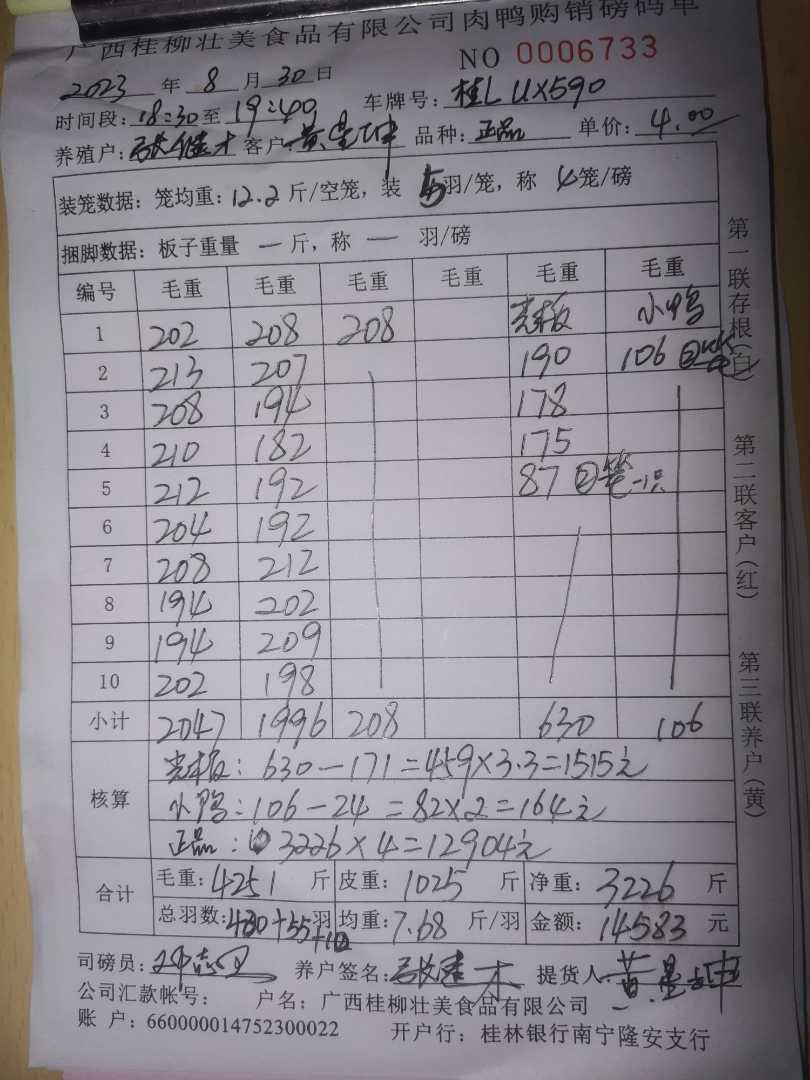 广西桂柳壮美食品有限公司肉鸭购销磅码单
NO 0006733
2023 年 8 月 30 日
时间段: 18:30 至 19:40 车牌号: 桂L UX590
养殖户: 客户: 黄 坤 品种: 正品 单价: 4.00
装笼数据: 笼均重: 12.2 斤/空笼, 装 5 羽/笼, 称 4 笼/磅
捆脚数据: 板子重量 一 斤, 称 一 羽/磅
编号 毛重 毛重 毛重 毛重 毛重 毛重
1 202 208 208 光板 小鸭
2 213 207 190 106 ②笼
3 208 194 178
4 210 182 175
5 212 192 87 ②笼一只
6 204 192
7 208 212
8 194 202
9 194 209
10 202 198
小计 2047 1996 208 630 106
核算
光板: 630-171=459×3.3=1515元
小鸭: 106-24=82×2=164元
正品: 3226×4=12904元
合计
毛重: 4251 斤 皮重: 1025 斤 净重: 3226 斤
总羽数: +55 羽 均重: 7.68 斤/羽 金额: 14583 元
司磅员: 养户签名: 提货人: 黄 坤
公司汇款帐号: 户名: 广西桂柳壮美食品有限公司
账 户: 660000014752300022 开户行: 桂林银行南宁隆安支行
第一联存根(白)
第二联客户(红)
第三联养户(黄)